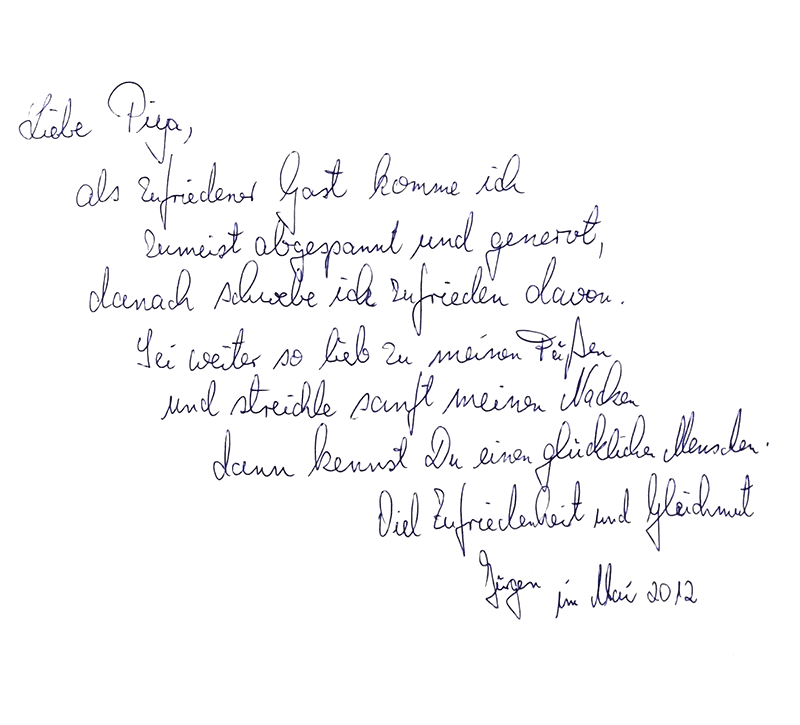 Liebe Piya,
als zufriedener Gast komme ich
zumeist abgespannt und genervt,
danach schwebe ich zufrieden davon.
Sei weiter so lieb zu meinen Füßen
und streichle sanft meinen Nacken
dann kennst Du einen glücklichen Menschen.
Viel Zufriedenheit und Gleichmut
Jürgen im Mai 2012